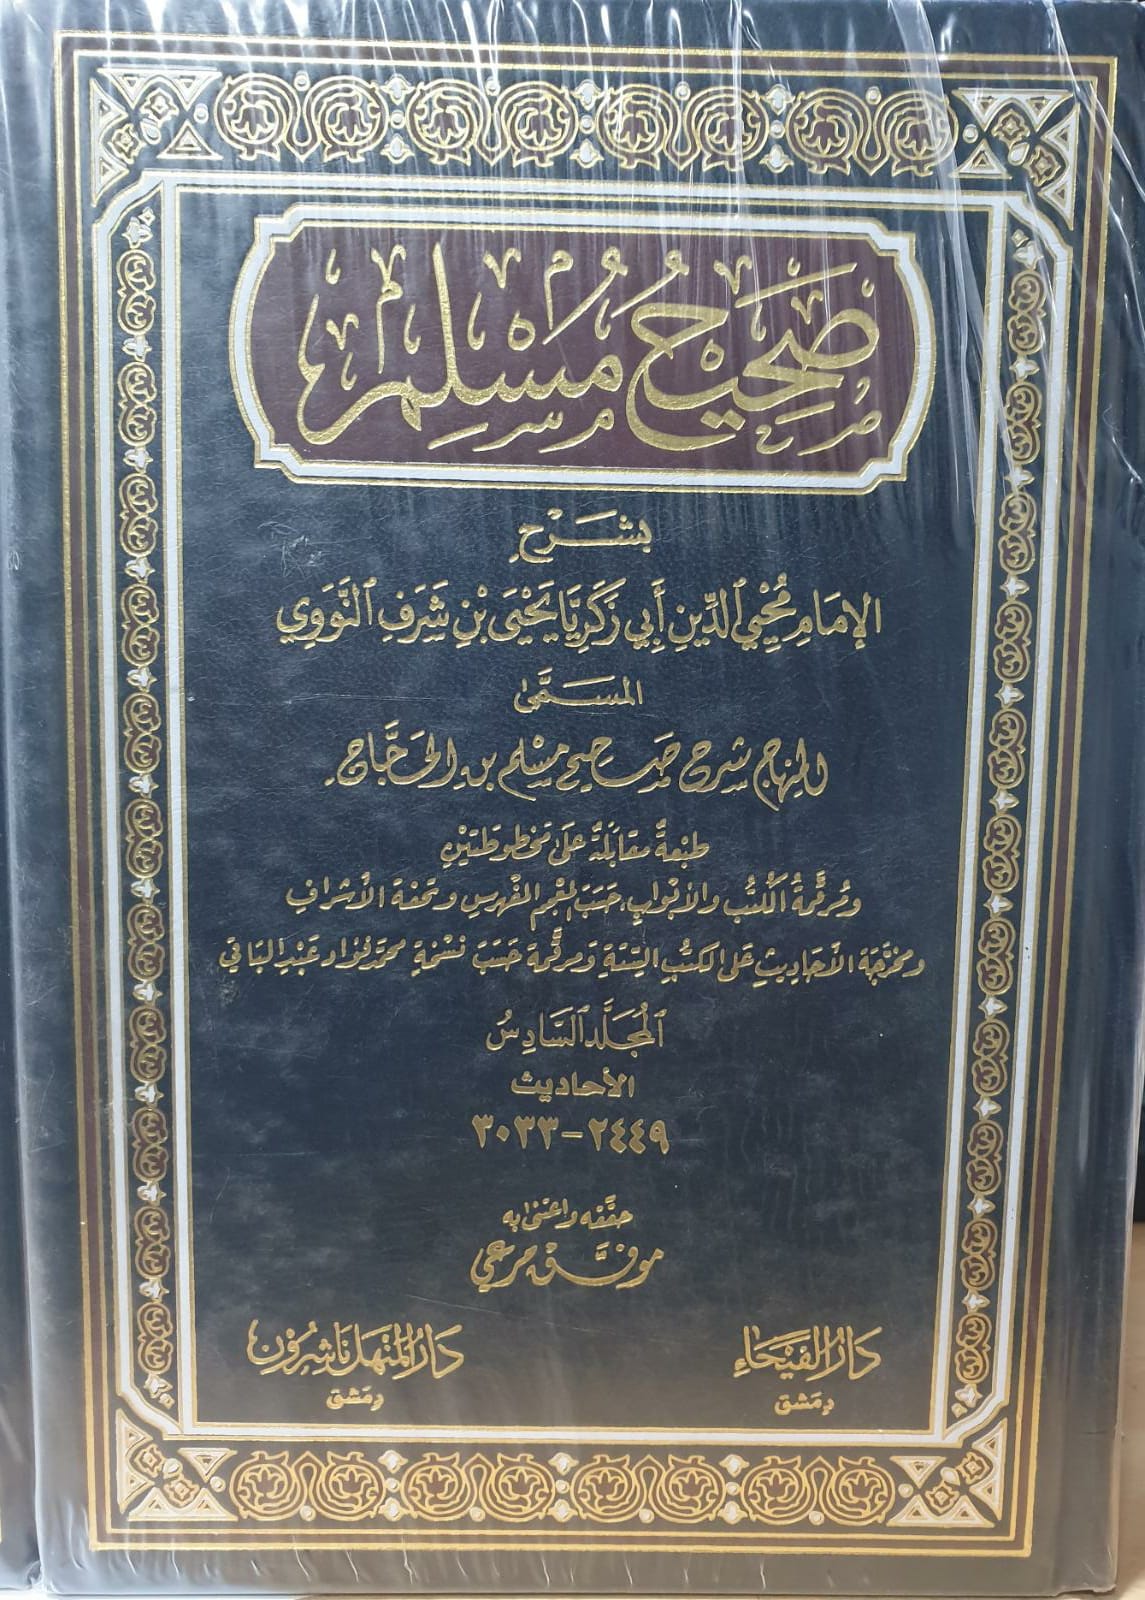 صَحِيحُ مُسْلِمٍ
بشَرْحِ
الإمَامِ مُحْيِي الدِّينِ أَبِي زَكَرِيَّا يَحْيَى بْنِ شَرَفِ النَّوَوِي
المسَمَّى
المنهاج شرح صحيح مسْلم بن الحَجَّاج
طبْعَةٌ مقَابَلَةٌ عَلَى مَخطوطتَيْن
ومُرقَّمةُ الكُتُبِ والأبْوابِ حَسَبَ المعْجَم المفْهرس وتحفة الأشراف
ومخرَّجَة الأحَاديثِ عَلَى الكتُبِ السِّتَّةِ وَمرقَّمة حَسَبَ نسْخَةِ محمّد فؤاد عَبْد البَاقي
المُجَلَّد السَّادِسُ
الأحاديث
٢٤٤٩ - ٣٠٣٣
حقَّقه واعتنى به
موفَّق مرعي
دَارُ الفَيْحَاء
دمَشق
دَارُ المَنْهَل نَاشِرُون
دمَشق